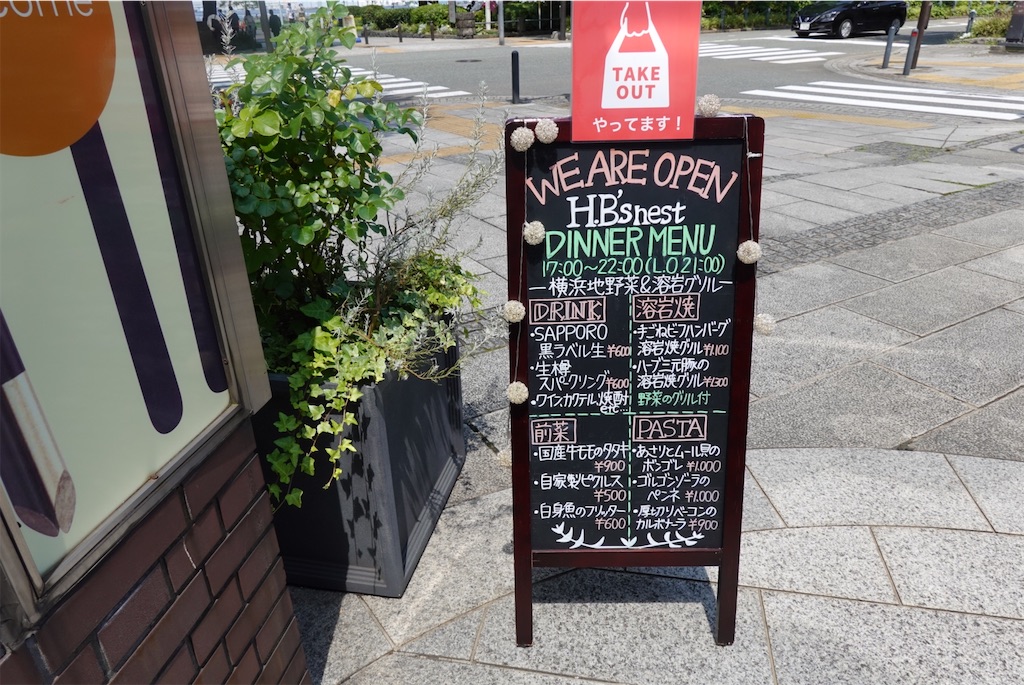 come
TAKE
OUT
やってます!
WE ARE OPEN
H.B's nest
DINNER MENU
17:00～22:00(L.O 21:00)
ー横浜地野菜&溶岩グリルー
DRINK
・SAPPORO
黒ラベル生 ¥600
・生樽
スパークリング ¥600
・ワイン カクテル 焼酎
etc...
溶岩焼
・手ごねビーフハンバーグ
溶岩焼グリル ¥1,100
・ハーブ三元豚の
溶岩焼グリル ¥1,300
野菜のグリル付
前菜
・国産牛モモのタタキ
¥900
・自家製ピクルス
¥500
・白身魚のフリッター
¥600
PASTA
・あさりとムール貝の
ボンゴレ ¥1,000
・ゴルゴンゾーラの
ペンネ ¥1,000
・厚切りベーコンの
カルボナーラ ¥900